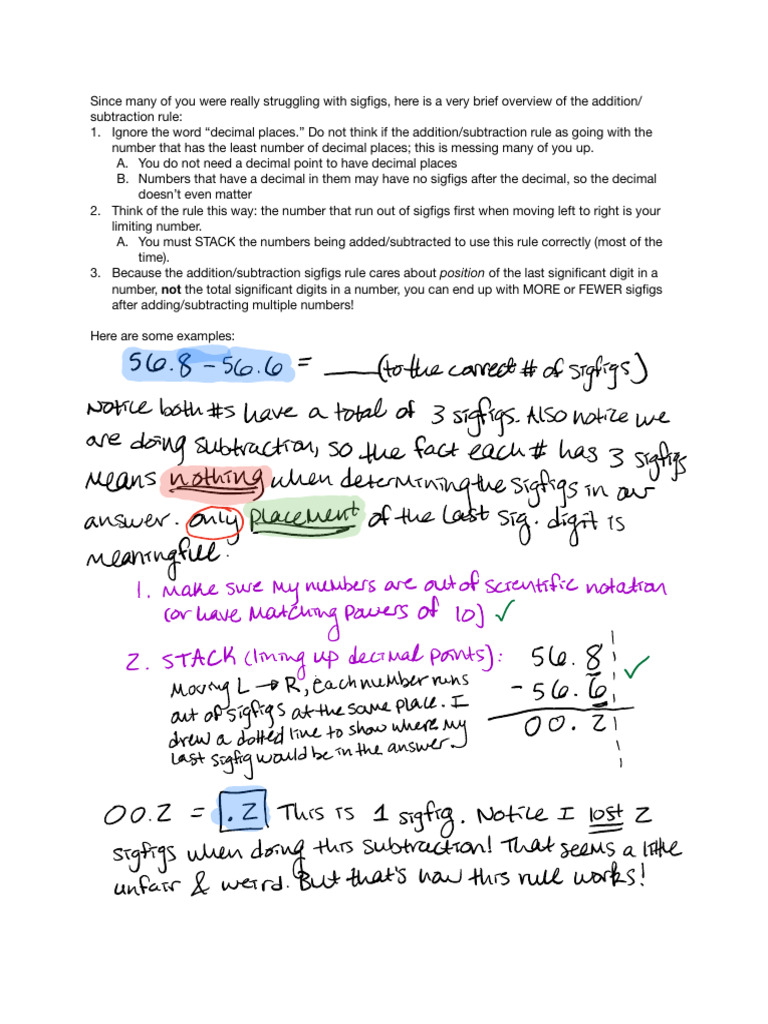 Since many of you were really struggling with sigfigs, here is a very brief overview of the addition/
subtraction rule:
1. Ignore the word “decimal places.” Do not think if the addition/subtraction rule as going with the
number that has the least number of decimal places; this is messing many of you up.
A. You do not need a decimal point to have decimal places
B. Numbers that have a decimal in them may have no sigfigs after the decimal, so the decimal
doesn’t even matter
2. Think of the rule this way: the number that run out of sigfigs first when moving left to right is your
limiting number.
A. You must STACK the numbers being added/subtracted to use this rule correctly (most of the
time).
3. Because the addition/subtraction sigfigs rule cares about position of the last significant digit in a
number, not the total significant digits in a number, you can end up with MORE or FEWER sigfigs
after adding/subtracting multiple numbers!
Here are some examples:
56.8 - 56.6 = ____ (to the correct # of sigfigs)
Notice both #s have a total of 3 sigfigs. Also notice we
are doing subtraction, so the fact each # has 3 sigfigs
means nothing when determining the sigfigs in our
answer. only placement of the last sig. digit is
meaningful.
1. Make sure my numbers are out of scientific notation
(or have matching powers of 10) ✓
2. STACK (lining up decimal points):
Moving L → R, each number runs
out of sigfigs at the same place. I
drew a dotted line to show where my
last sigfig would be in the answer.
56.8
- 56.6 ✓
00.2
00.2 = .2 This is 1 sigfig. Notice I lost 2
sigfigs when doing this subtraction! That seems a little
unfair & weird. But that's how this rule works!